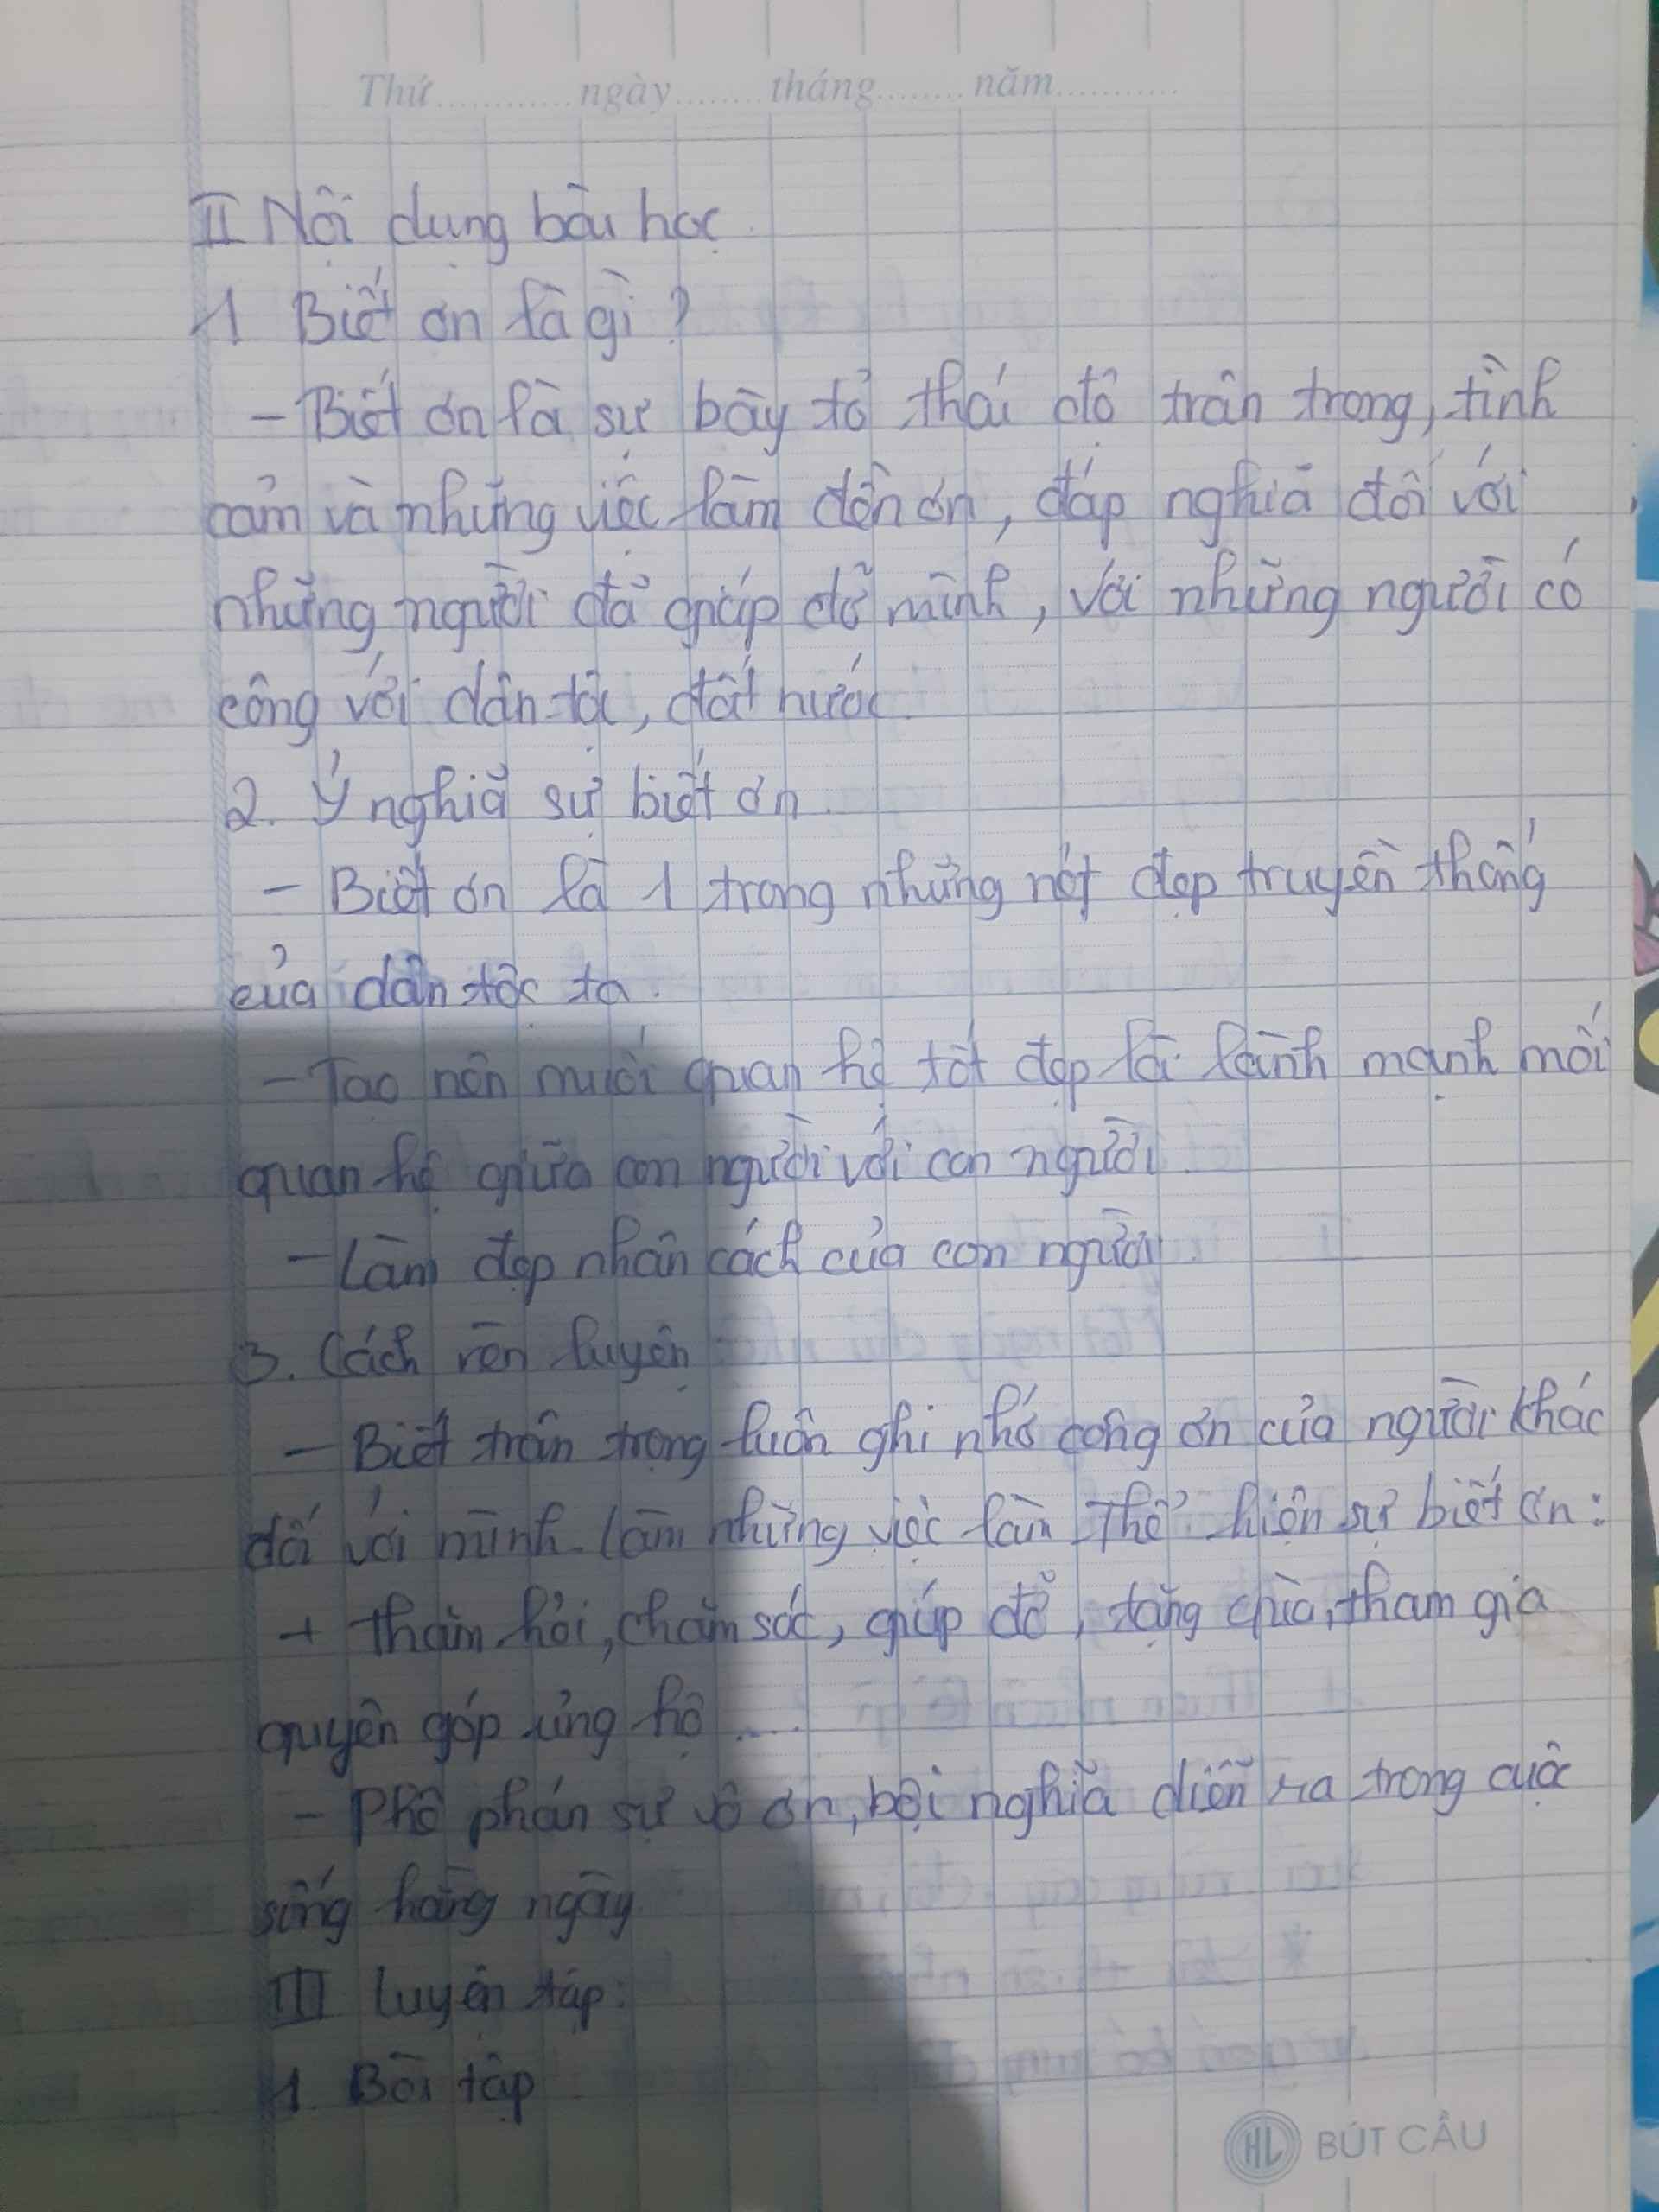 Thứ............ngày........tháng........năm...........
II Nội dung bài học
1 Biết ơn là gì?
- Biết ơn là sự bày tỏ thái độ trân trọng, tình
cảm và những việc làm đền ơn, đáp nghĩa đối với
những người đã giúp đỡ mình, với những người có
công với dân tộc, đất nước
2. Ý nghĩa sự biết ơn
- Biết ơn là 1 trong những nét đẹp truyền thống
của dân tộc ta.
- Tạo nên mười quan hệ tốt đẹp lối lành mạnh mối
quan hệ giữa con người với con người
- Làm đẹp nhân cách của con người
3. Cách rèn luyện
- Biết trân trọng luôn ghi nhớ công ơn của người khác
đối với mình. Làm những việc làm Thể hiện sự biết ơn:
+ thăm hỏi, chăm sóc, giúp đỡ, tặng quà, tham gia
quyên góp ủng hộ ...
- Phê phán sự vô ơn, bội nghĩa diễn ra trong cuộc
sống hằng ngày
III luyện tập:
1. Bài tập
HL BÚT CẦU